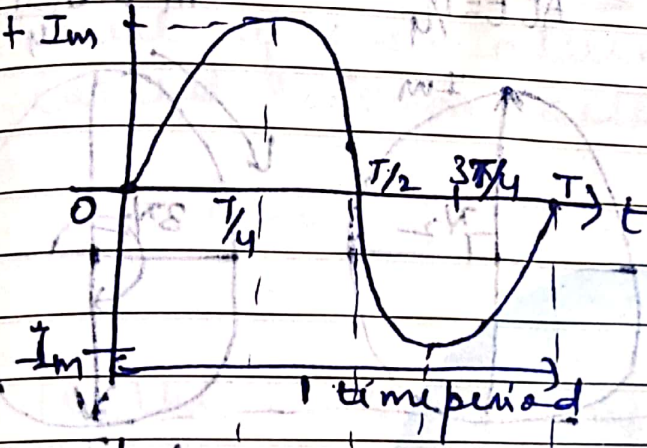 + Im
O T/4 T/2 3T/4 T t
Im
1 time period